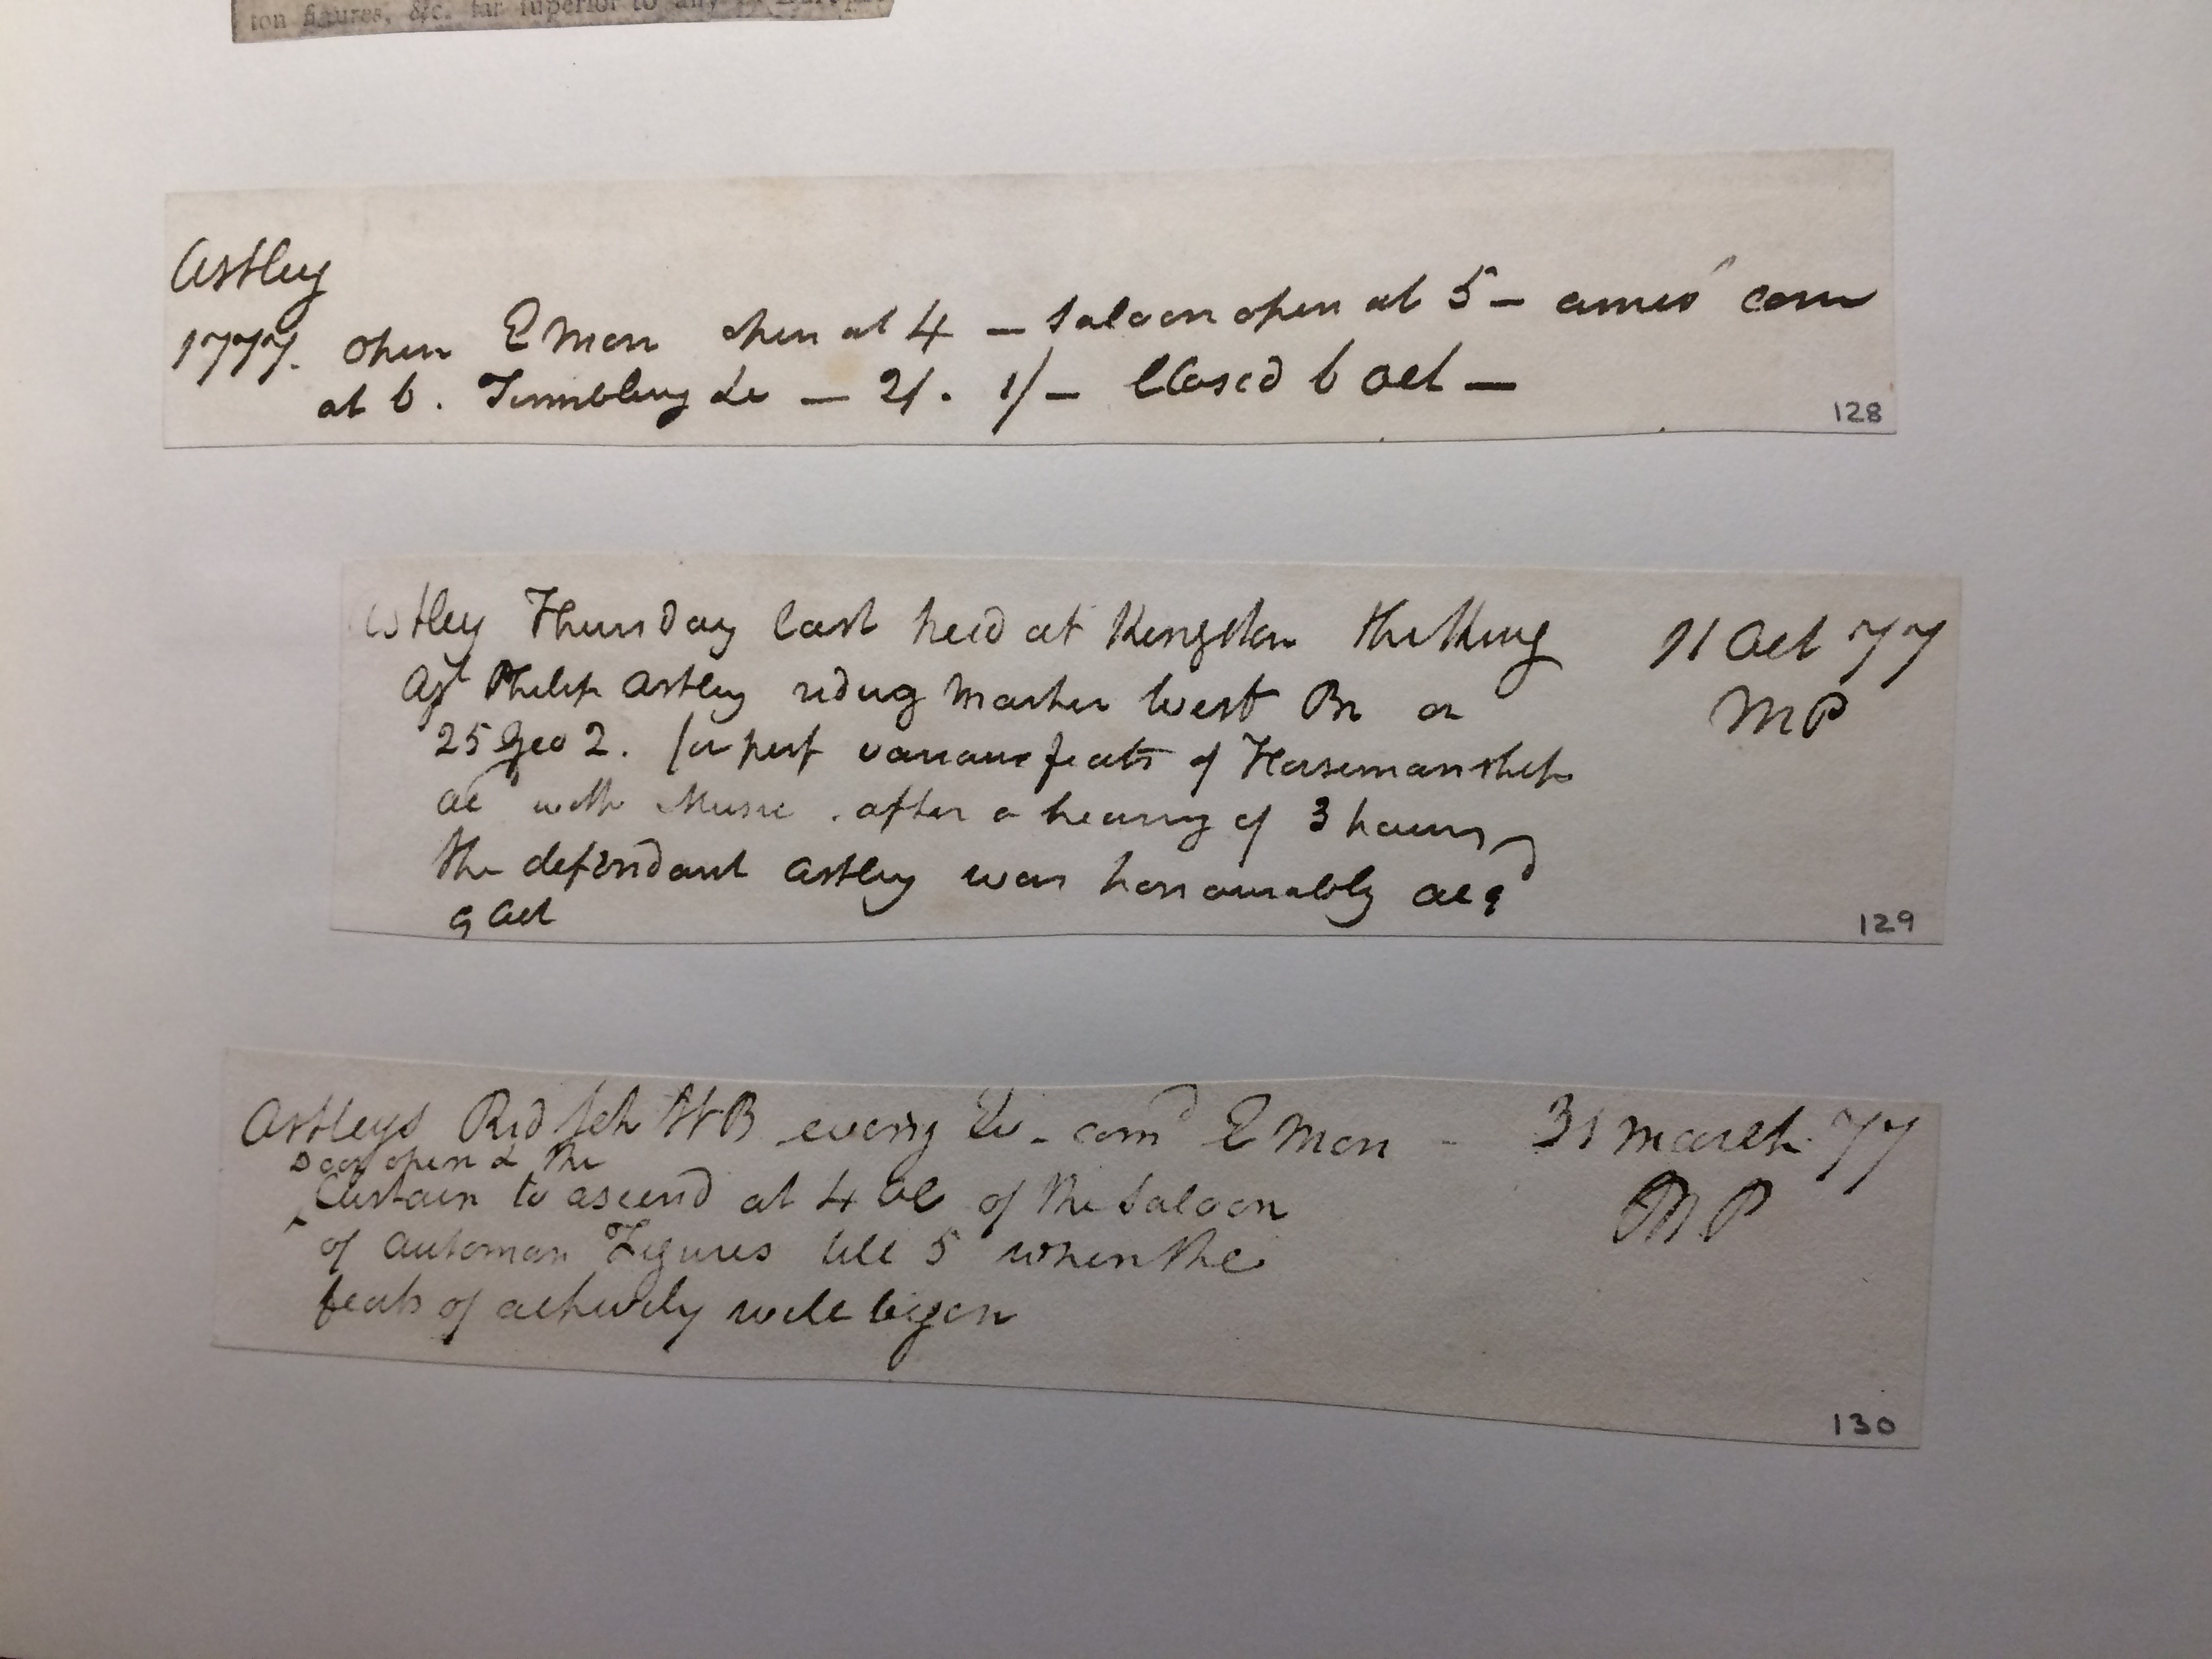 ton figures, &c. far superior to any
Astley
1777. open E Mon open at 4 — Saloon open at 5 — amus com
at 6. Tumbling &c — 2/. 1/— Closed 6 Oct —
128
Astley Thursday last heid at Kingston the King 11 Oct 77
Agt Philip Astley riding Master West Br on MP
25 Geo 2. for perf various feats of Horsemanship
ac with Music. after a hearing of 3 hours
the defendant Astley was honourably acqd
9 Oct
129
Astleys Rid Sch WB every Ev - comd E Mon - 31 March 77
Door open & the
Curtain to ascend at 4 oC of the Saloon MP
of Automan Figures till 5 when the
feats of activity will begin
130